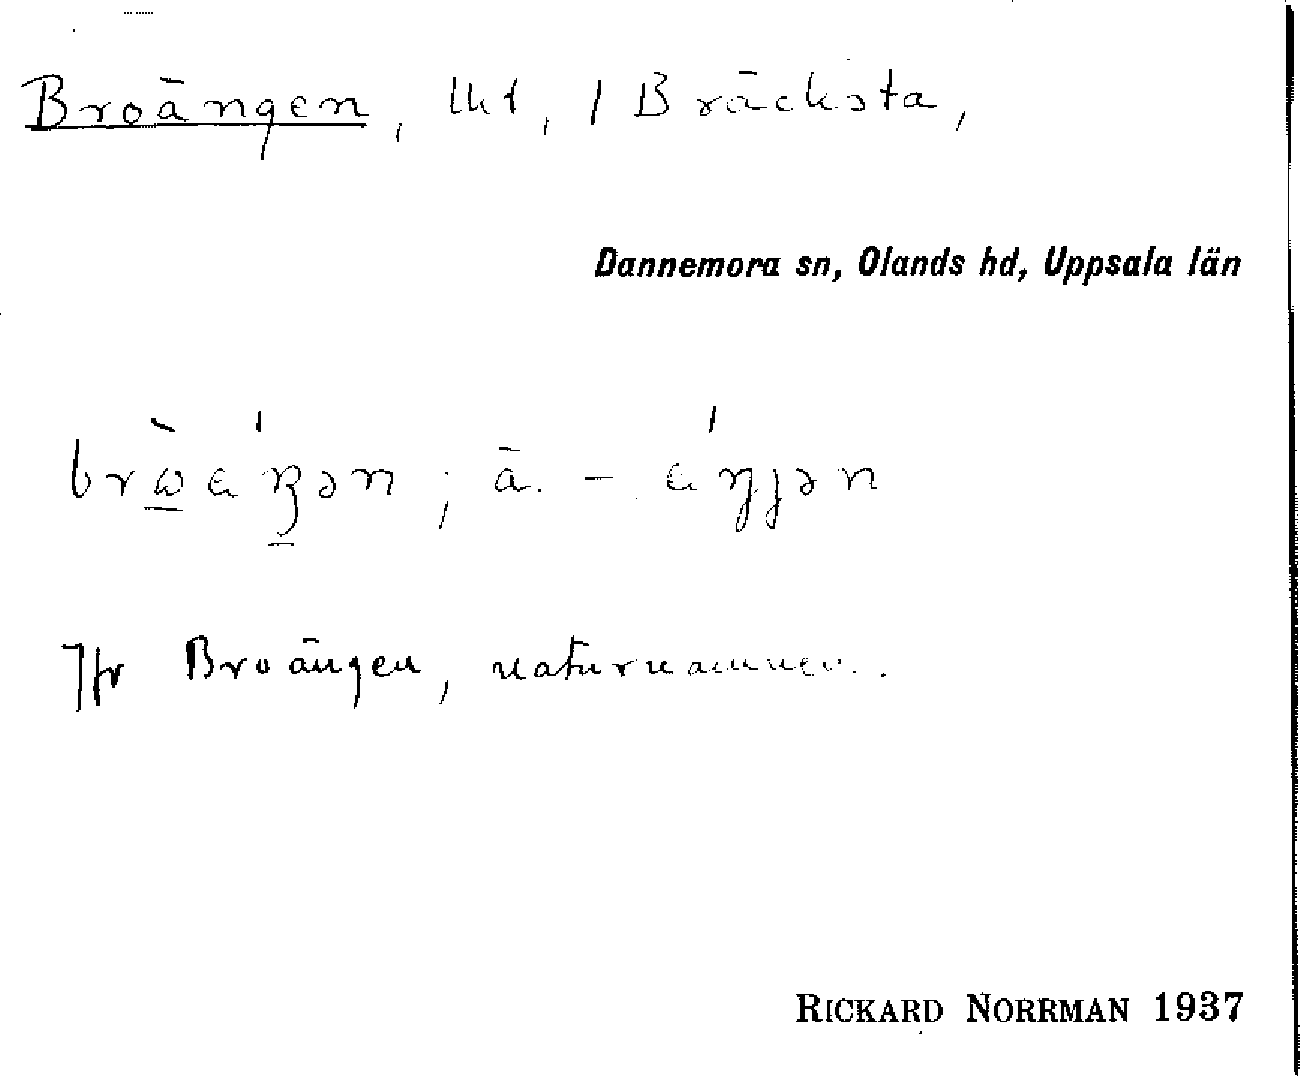 Broängen, lht, / Bräcksta,
Dannemora sn, Olands hd, Uppsala län
; ä. –
Jfr Broängen, naturnamnen.
RICKARD NORRMAN 1937